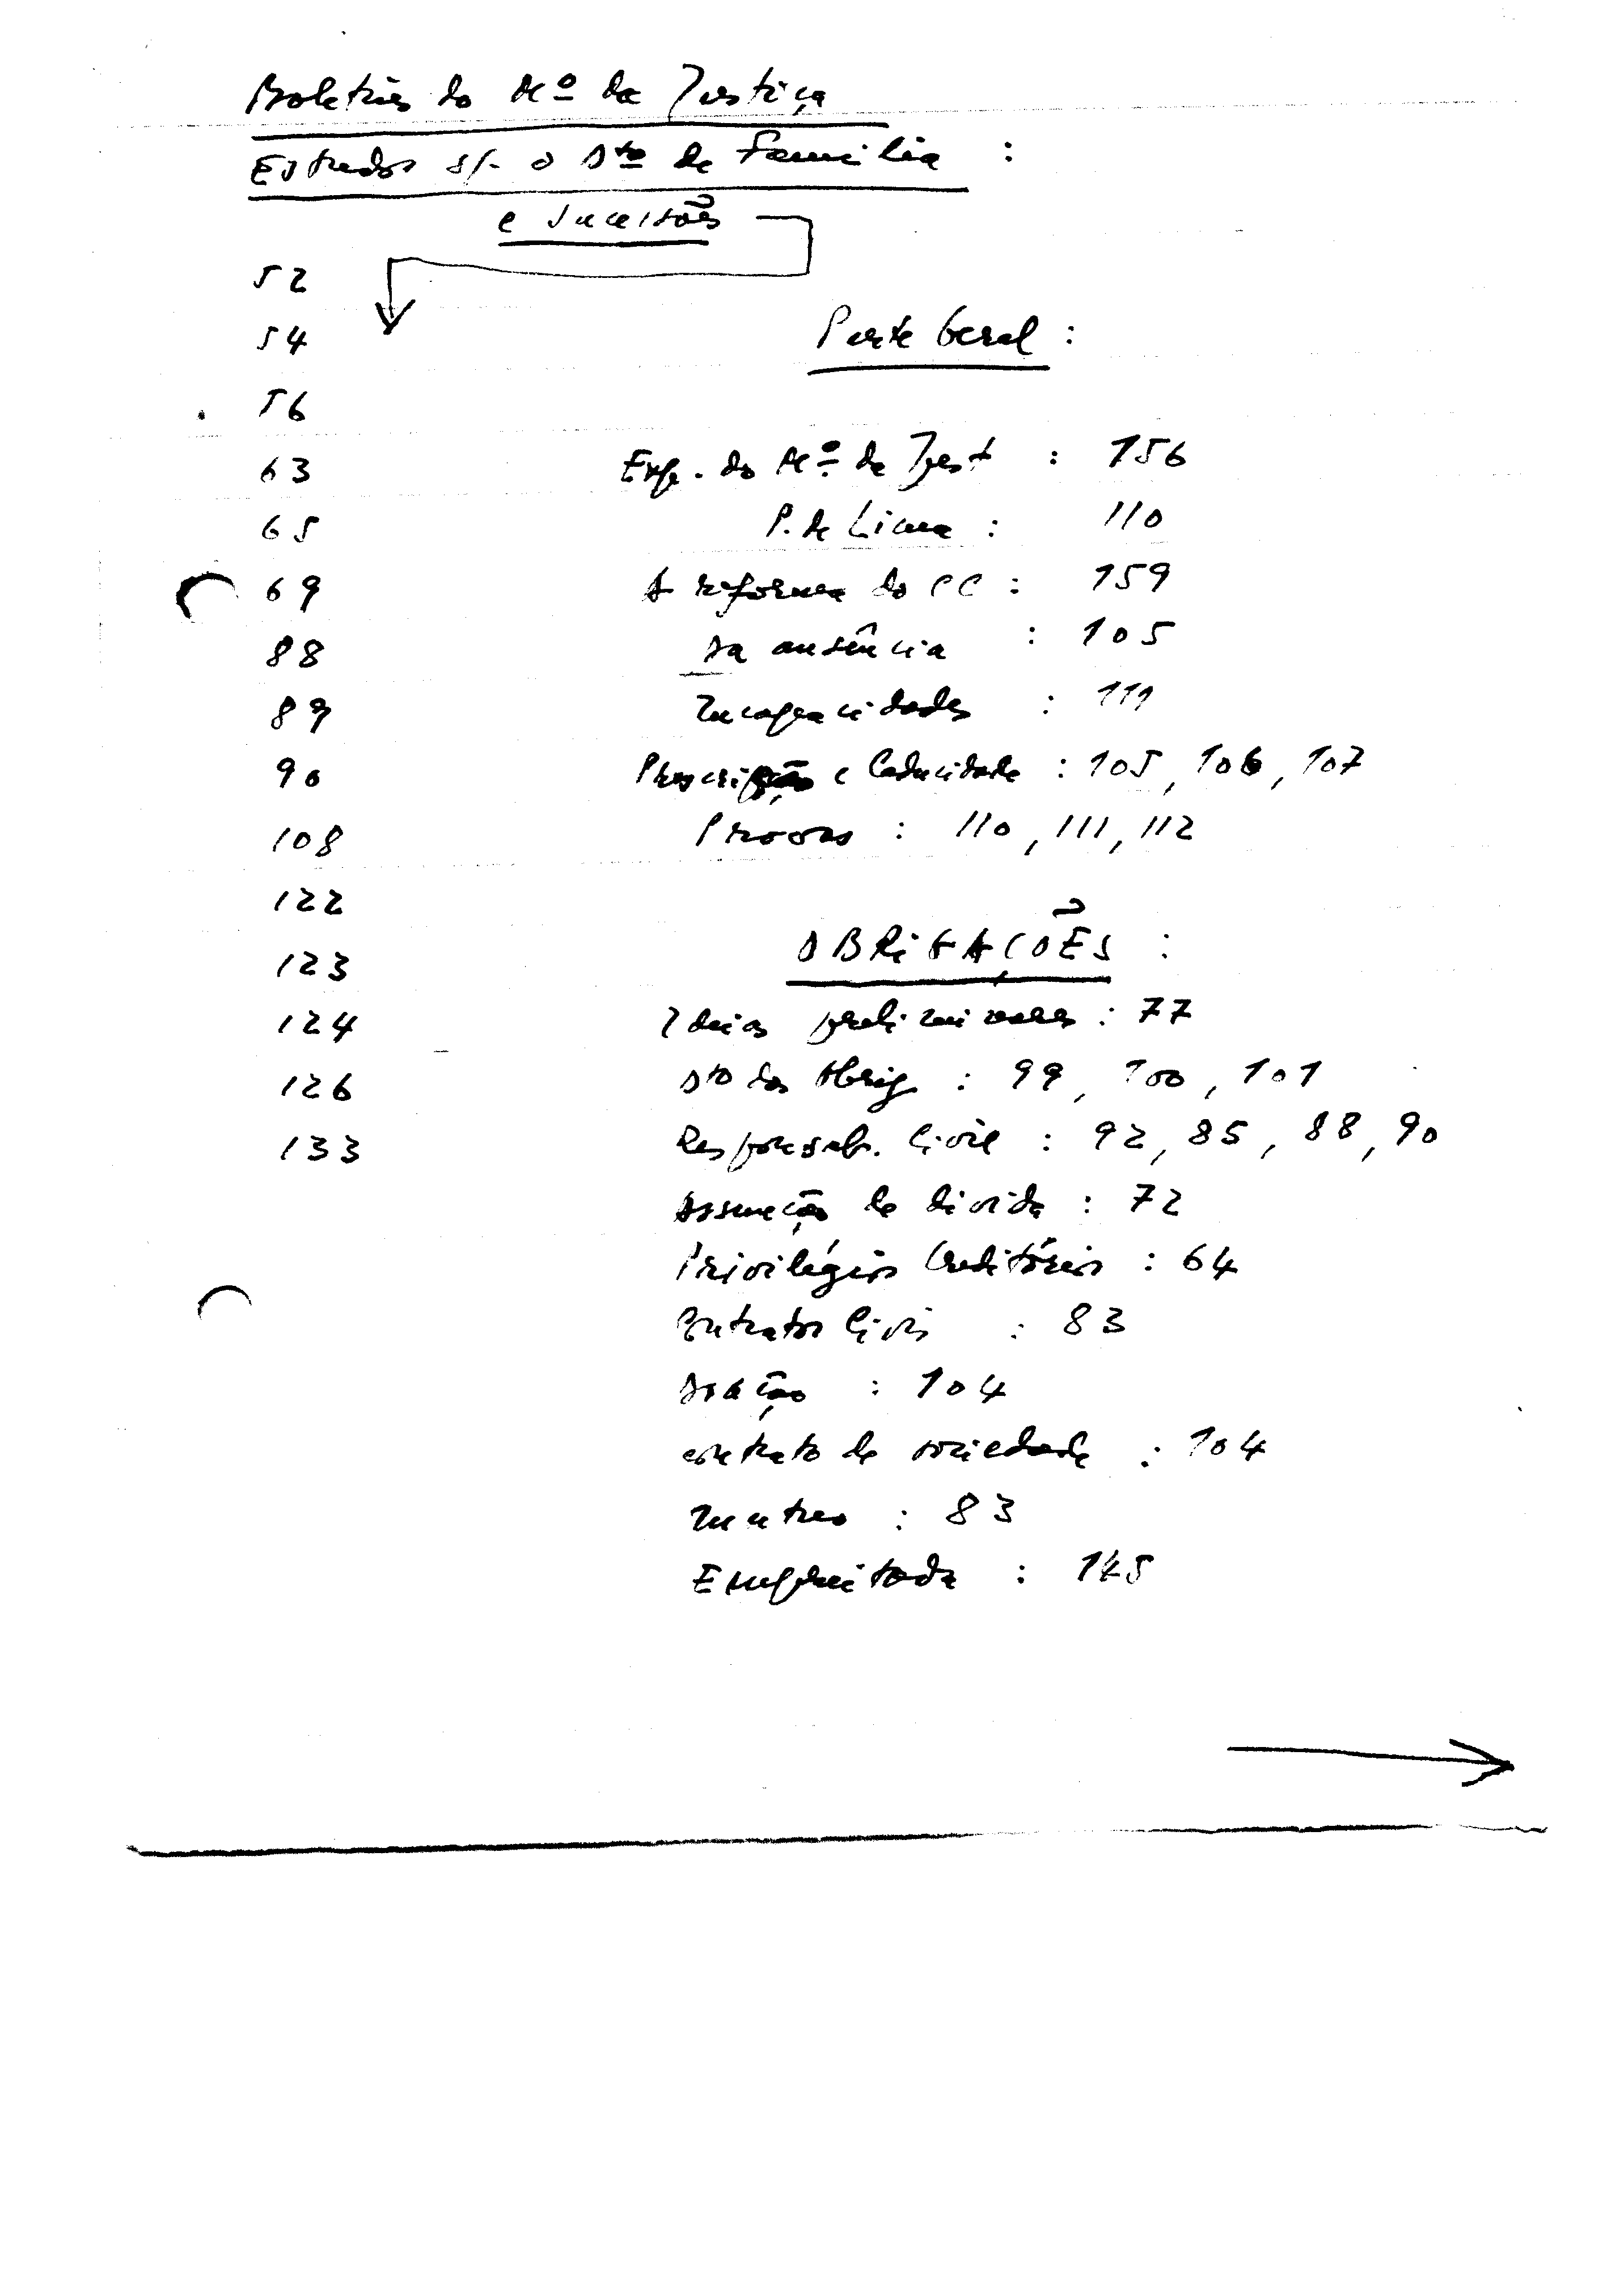 Boletins do Mº da Justiça
Estudos s/. o Dto de Família :
e Sucessões
52
54
56
63
65
69
88
89
90
108
122
123
124
126
133
Parte Geral :
Exp. do Mº da Just : 156
P. de Lima : 110
A reforma do CC : 159
Da ausência : 105
Incapacidades : 111
Prescrição e Caducidade : 105, 106, 107
Provas : 110, 111, 112
OBRIGAÇÕES :
Ideias preliminares : 77
Dto das Obrig : 99, 100, 101
Responsab. Civil : 92, 85, 88, 90
Assunção de dívida : 72
Privilégios Creditórios : 64
Contratos Civis : 83
Doação : 104
contrato de sociedade : 104
Mútuo : 83
Empreitada : 145